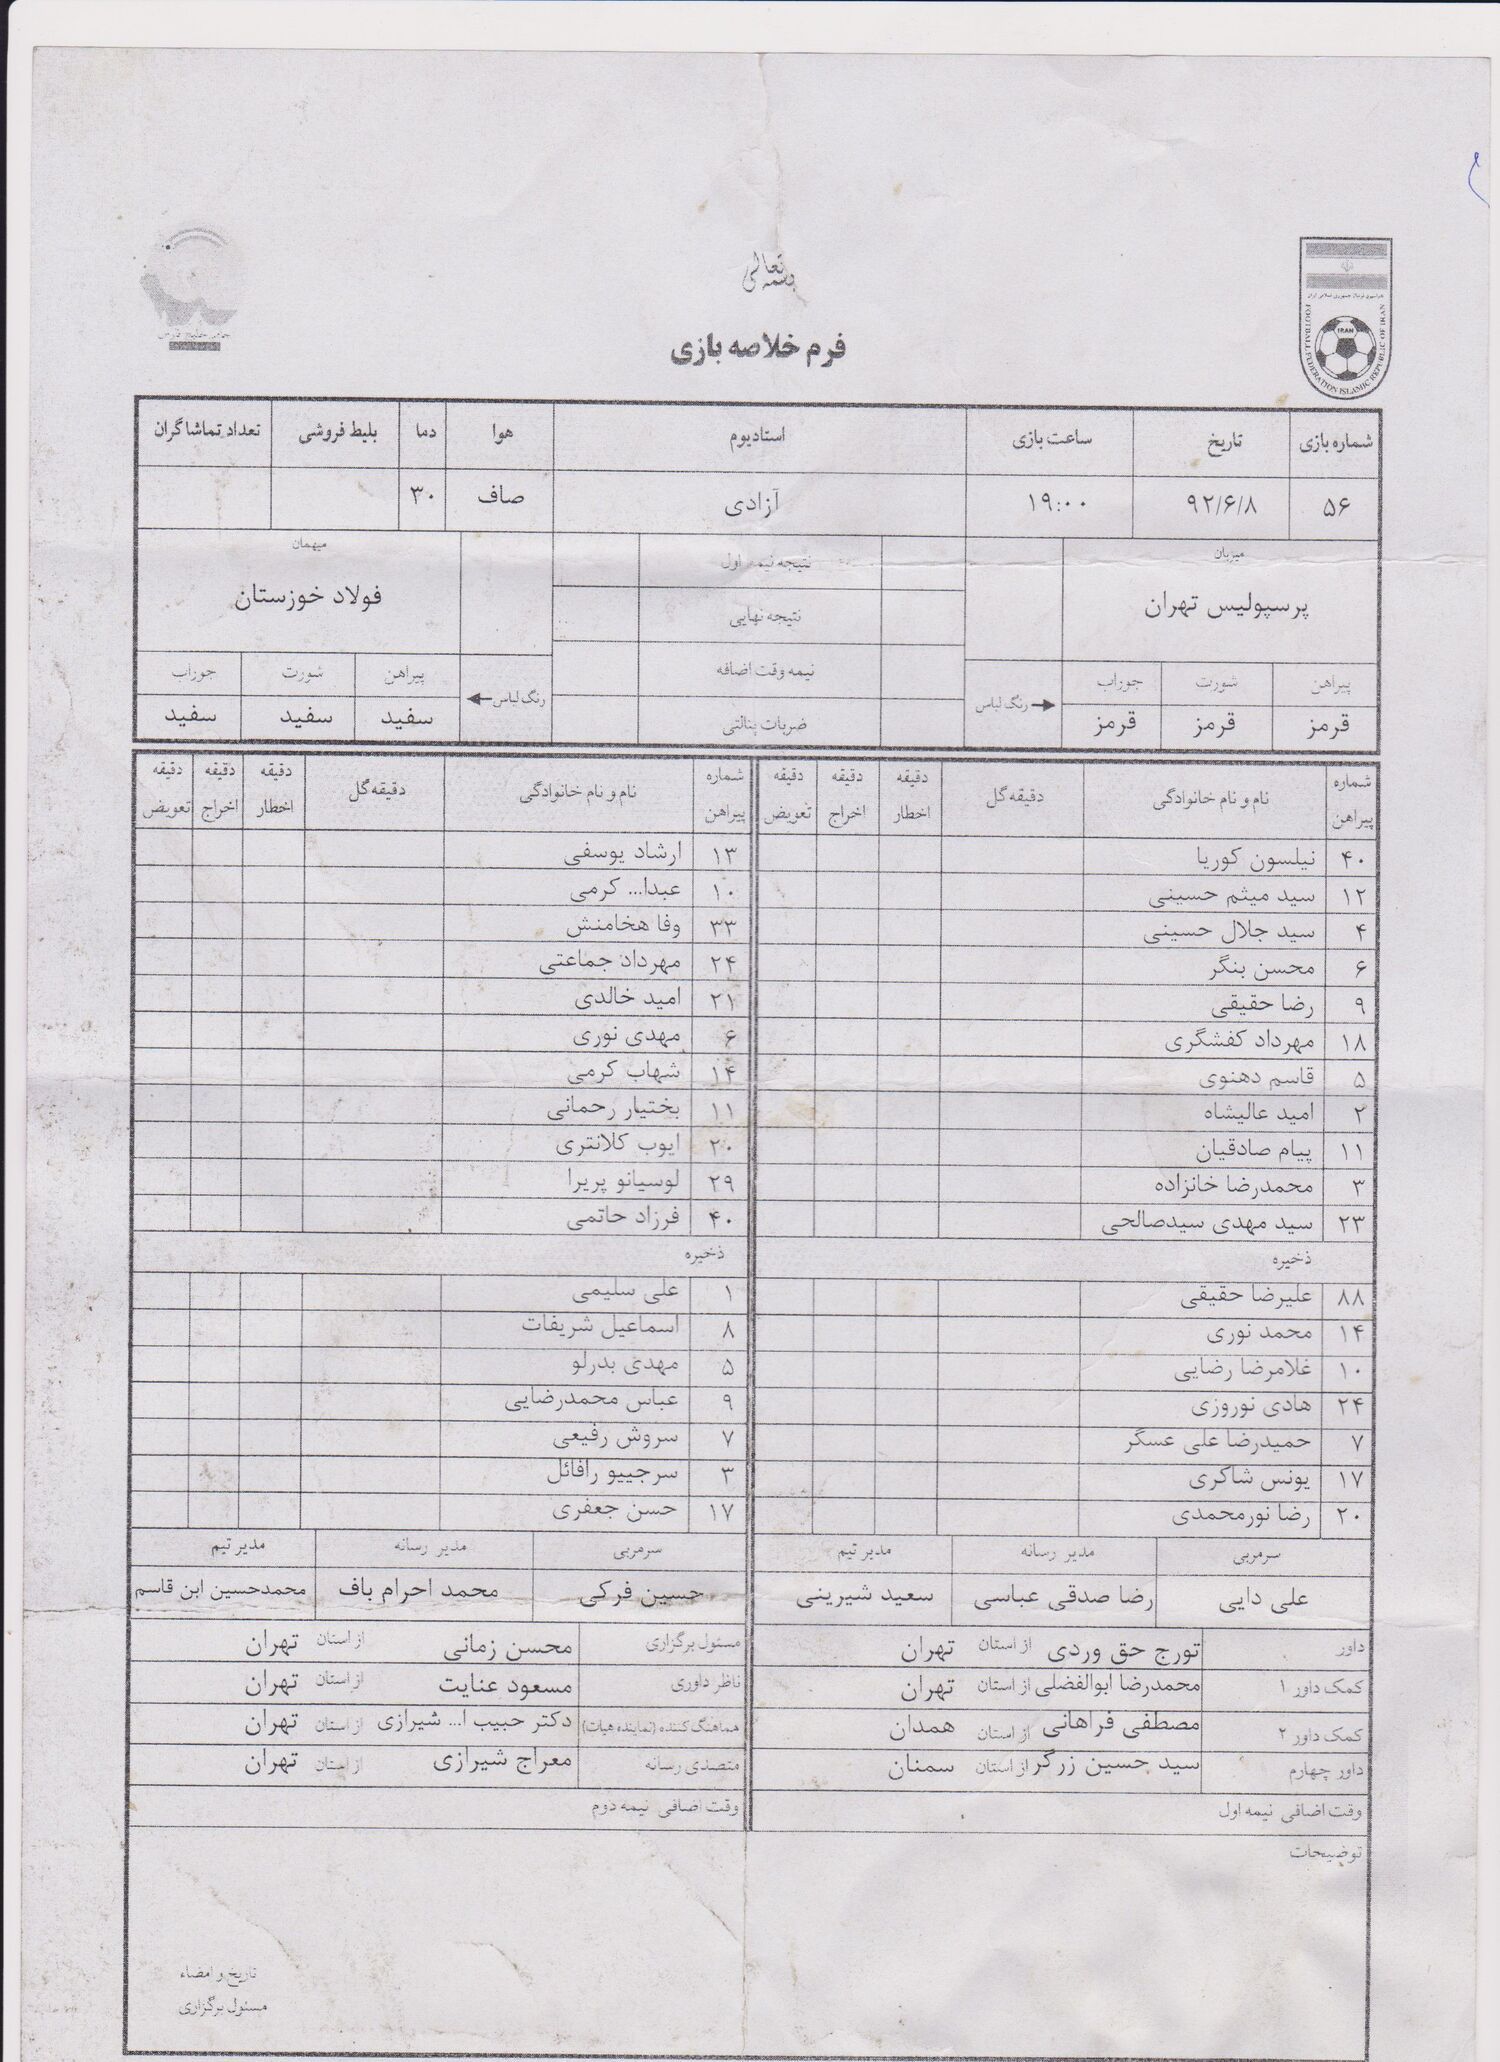 بسمه تعالی
فرم خلاصه بازی
FOOTBALL FEDERATION ISLAMIC REPUBLIC OF IRAN
IRAN
شماره بازی تاریخ ساعت بازی استادیوم هوا دما بلیط فروشی تعداد تماشاگران
۵۶ ۹۲/۶/۸ ۱۹:۰۰ آزادی صاف ۳۰
میزبان نتیجه نیمه اول میهمان
پرسپولیس تهران نتیجه نهایی فولاد خوزستان
پیراهن شورت جوراب رنگ لباس نیمه وقت اضافه رنگ لباس پیراهن شورت جوراب
قرمز قرمز قرمز ضربات پنالتی سفید سفید سفید
شماره پیراهن نام و نام خانوادگی دقیقه گل دقیقه اخطار دقیقه اخراج دقیقه تعویض شماره پیراهن نام و نام خانوادگی دقیقه گل دقیقه اخطار دقیقه اخراج دقیقه تعویض
۴۰ نیلسون کوریا ۱۳ ارشاد یوسفی
۱۲ سید میثم حسینی ۱۰ عبدا... کرمی
۴ سید جلال حسینی ۳۳ وفا هخامنش
۶ محسن بنگر ۲۴ مهرداد جماعتی
۹ رضا حقیقی ۲۱ امید خالدی
۱۸ مهرداد کفشگری ۶ مهدی نوری
۵ قاسم دهنوی ۱۴ شهاب کرمی
۲ امید عالیشاه ۱۱ بختیار رحمانی
۱۱ پیام صادقیان ۲۰ ایوب کلانتری
۳ محمدرضا خانزاده ۲۹ لوسیانو پریرا
۲۳ سید مهدی سیدصالحی ۴۰ فرزاد حاتمی
ذخیره ذخیره
۸۸ علیرضا حقیقی ۱ علی سلیمی
۱۴ محمد نوری ۸ اسماعیل شریفات
۱۰ غلامرضا رضایی ۵ مهدی بدرلو
۲۴ هادی نوروزی ۹ عباس محمدرضایی
۷ حمیدرضا علی عسگر ۷ سروش رفیعی
۱۷ یونس شاکری ۳ سرجییو رافائل
۲۰ رضا نورمحمدی ۱۷ حسن جعفری
سرمربی مدیر رسانه مدیر تیم سرمربی مدیر رسانه مدیر تیم
علی دایی رضا صدقی عباسی سعید شیرینی حسین فرکی محمد احرام باف محمدحسین ابن قاسم
داور تورج حق وردی از استان تهران مسئول برگزاری محسن زمانی از استان تهران
کمک داور ۱ محمدرضا ابوالفضلی از استان تهران ناظر داوری مسعود عنایت از استان تهران
کمک داور ۲ مصطفی فراهانی از استان همدان هماهنگ کننده (نماینده هیات) دکتر حبیب ا... شیرازی از استان تهران
داور چهارم سید حسین زرگر از استان سمنان متصدی رسانه معراج شیرازی از استان تهران
وقت اضافی نیمه اول وقت اضافی نیمه دوم
توضیحات
تاریخ و امضاء
مسئول برگزاری